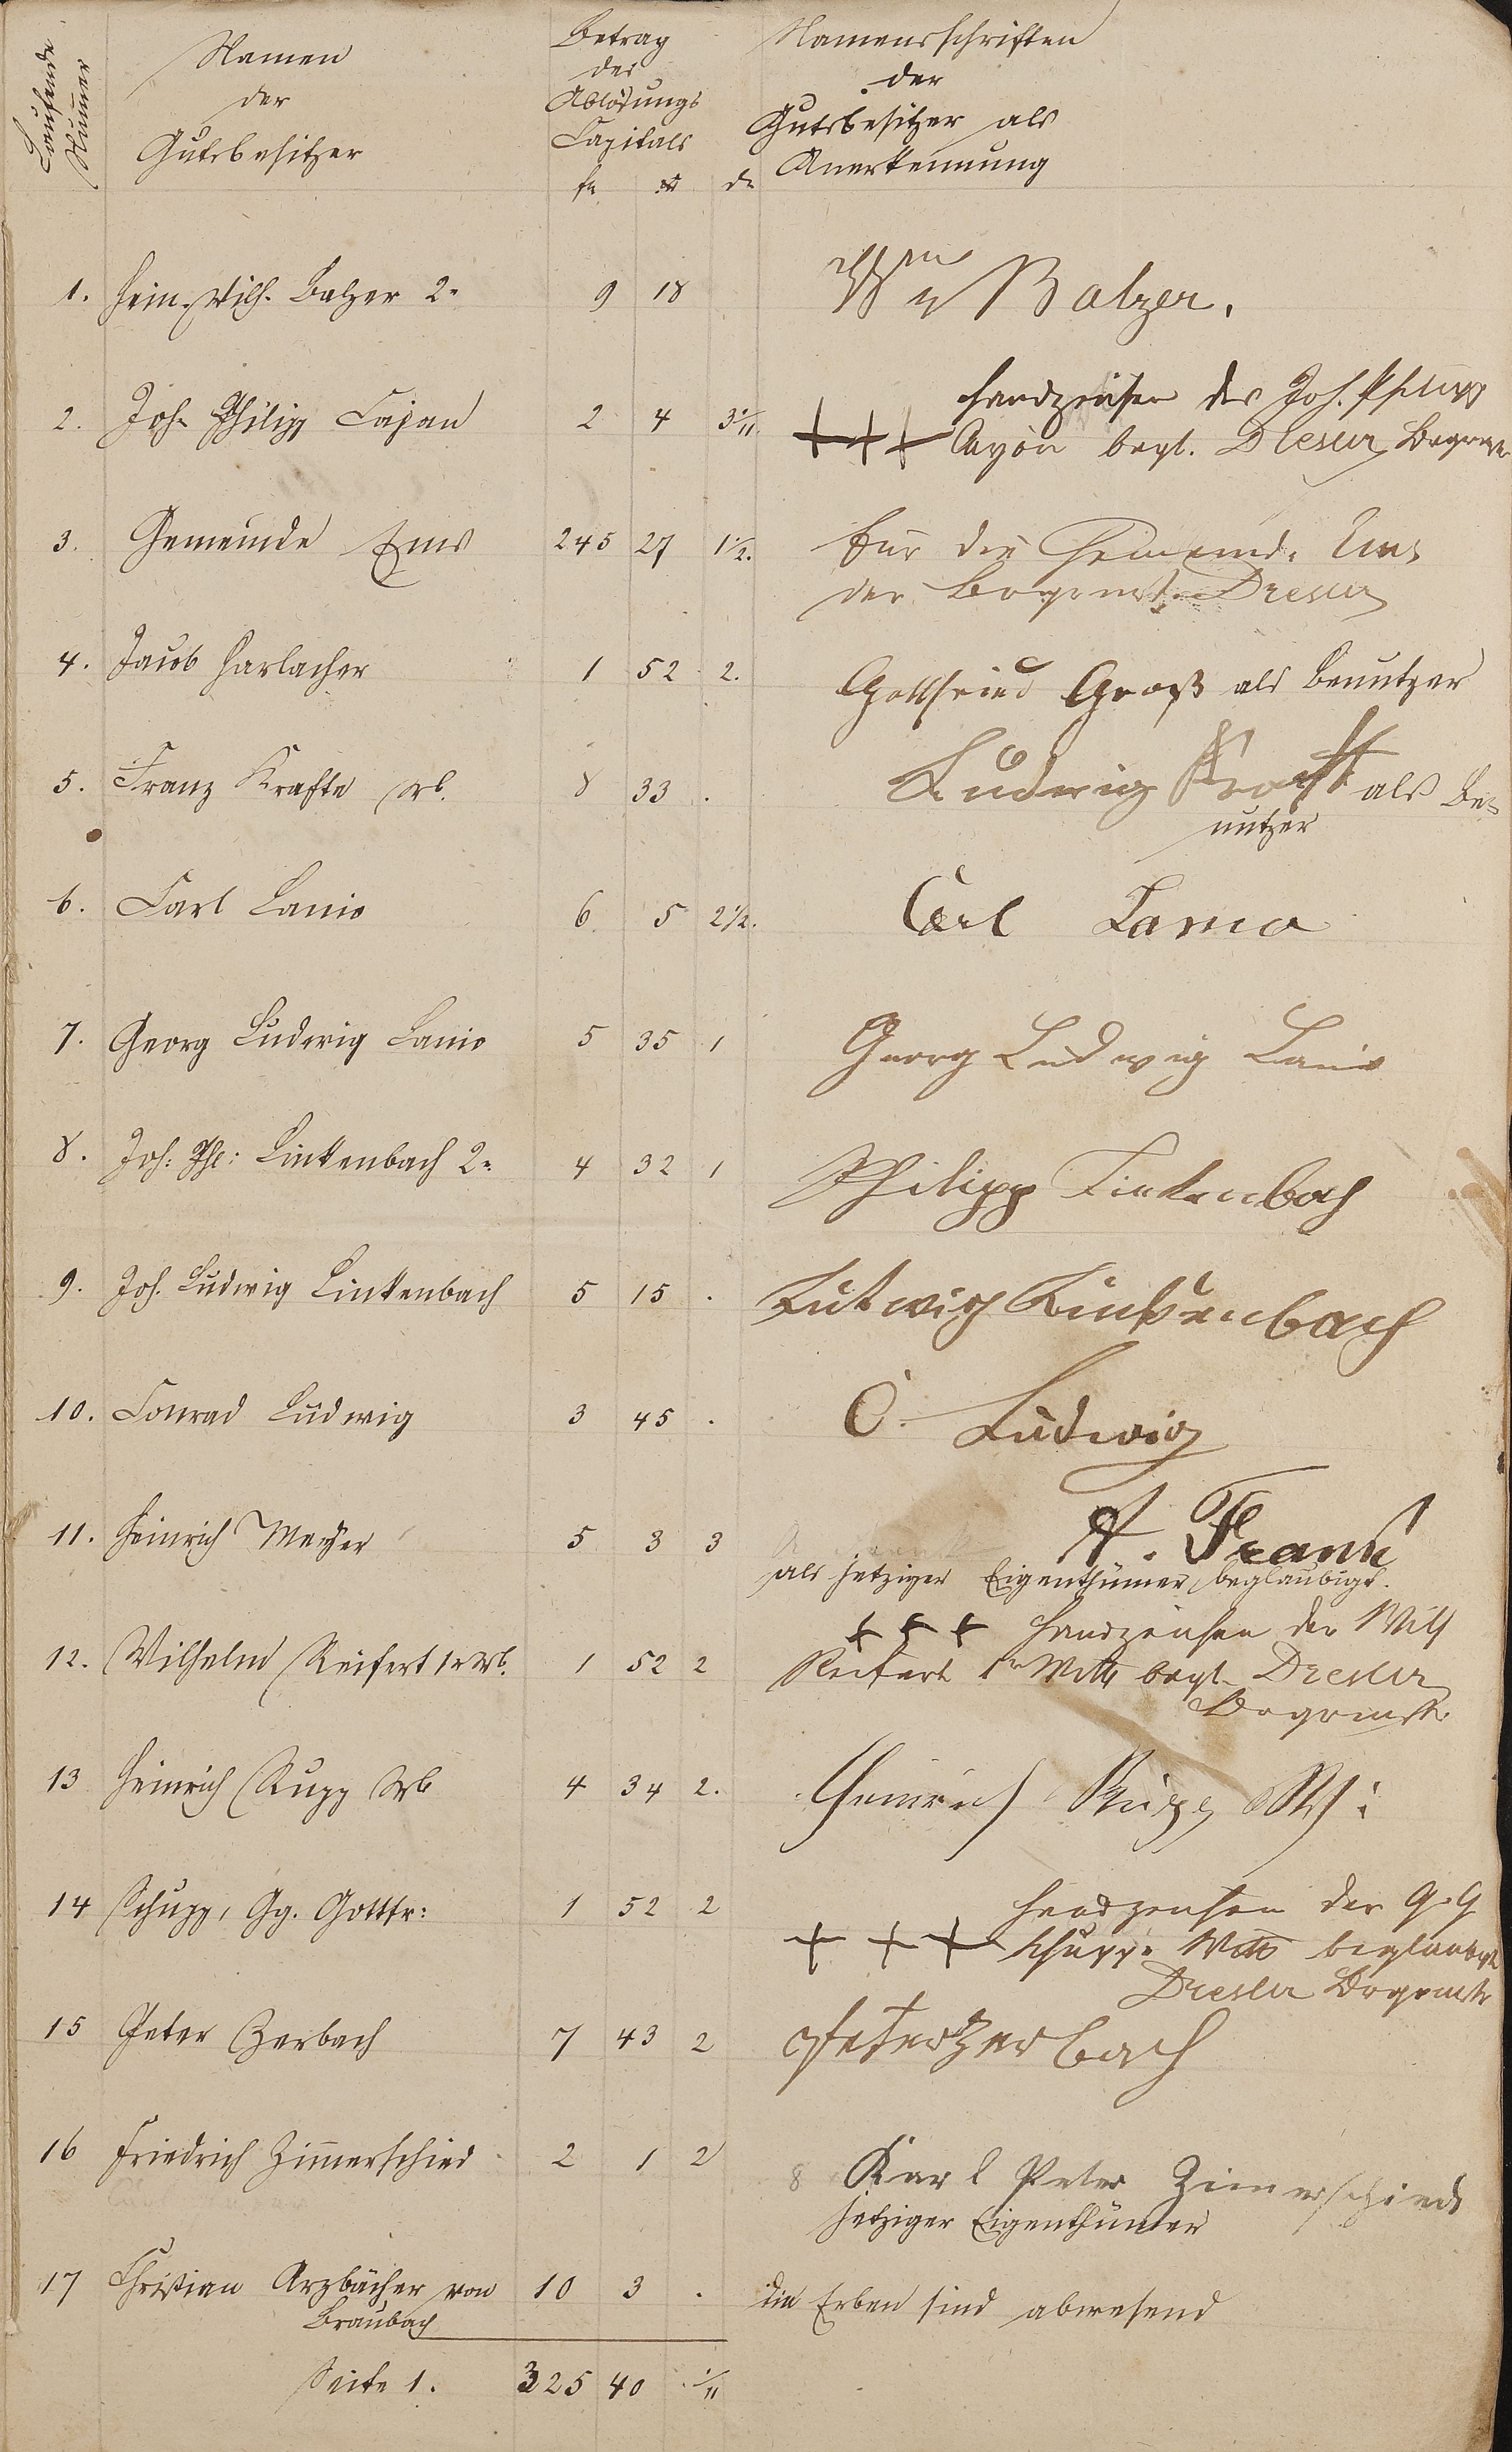 Laufende Numer
Namen der Gutsbesitzer
Betrag des Ablösungs Capitals
fl. xr d.
Namensschriften der Gutsbesitzer als Anerkennung
1. Hein. Wilh. Balzer 2r 9 18 Wm Balzer.
2. Joh. Philipp Cajan 2 4 3 1/11.
Handzeichen des Joh. Philipp
+++ Cayan begl. Dresler Bürgermstr
3. Gemeinde Ems 245 27 1 1/2.
für die Gemeinde Ems
der Bürgermstr Dresler
4. Jacob Harlacher 1 52 2. Gottfried Groß als Benutzer
5. Franz Krafts Wb. 8 33 . Ludwig Kraft als Be-
nutzer
6. Carl Lanio 6. 5 2 1/2. Carl Lanio
7. Georg Ludwig Lanio 5 35 1 Georg Ludwig Lanio
8. Joh: Phl: Linkenbach 2r 4 32 1 Philipp Linkenbach
9. Joh. Ludwig Linkenbach 5 15 . Lutwig Linkenbach
10. Conrad Ludwig 3 45 . C. Ludwig
11. Heinrich Meyer 5 3 3 A. Frank
als jetziger Eigenthümer beglaubigt.
12. Wilhelm Reifert 1r Wb. 1 52 2
+++ Handzeichen der Wilh
Reifert 1r Wtb begl. Dresler
Bürgermstr
13 Heinrich Rupp Wb 4 34 2. Heinrich Rupp
14 Schupp, Gg. Gottfr: 1 52 2
Handzeichen der G. G
+ + + Schupp Wtb beglaubigt
Dresler Bürgermstr
15 Peter Zerbach 7 43 2 Peter Zerbach
16 Friedrich Zimerschied 2 1 2 Karl Peter Zimerschied
jetziger Eigenthümer
17 Christian Arzbächer von 10 3 . die Erben sind abwesend
Braubach
Seite 1. 325 40 . 1/11